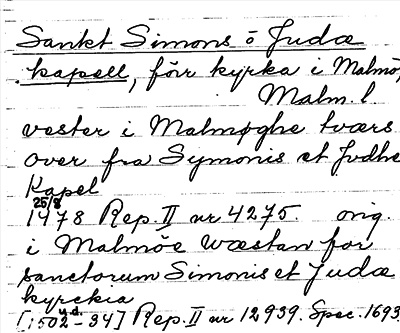 Sankt Simons o Judæ
kapell, förr kyrka i Malmö,
Malm l.
vester i Malmøghe tværs
over fra Symonis et Jvdhe
Kapel
25/8
1478 Rep. II nr 4275. orig.
i Malmöe wæstan for
sanctorum Simonis et Judæ
kyrckia
u.d.
[1502-34] Rep. II nr 12939. Spec. 1693